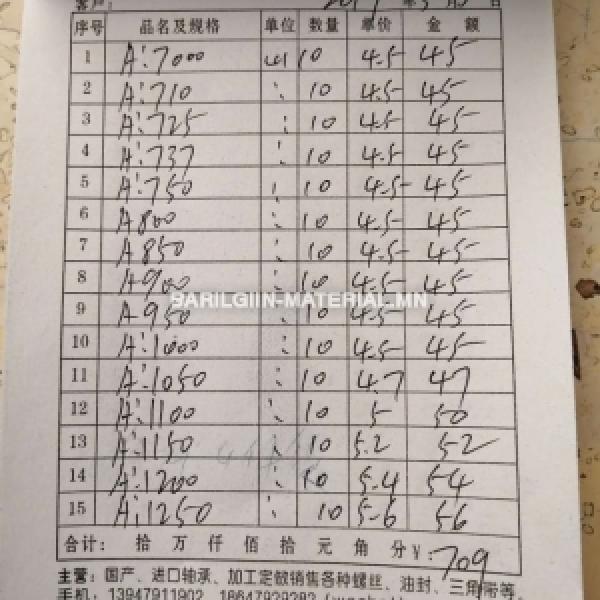 客户:
序号 品名及规格 单位 数量 单价 金额
1 A:7000 10 4.5 45
2 A:710 : 10 4.5 45
3 A:725 : 10 4.5 45
4 A:737 : 10 4.5 45
5 A:750 : 10 4.5 45
6 A800 : 10 4.5 45
7 A850 : 10 4.5 45
8 A900 : 10 4.5 45
BARILGIIN-MATERIAL.MN
9 A950 : 10 4.5 45
10 A:1000 : 10 4.5 45
11 A:1050 : 10 4.7 47
12 A:1100 : 10 5 50
13 A:1150 : 10 5.2 52
14 A:1200 : 10 5.4 54
15 A:1250 : 10 5-6 56
合计: 拾 万 仟 佰 拾 元 角 分 ¥: 709
主营: 国产、进口轴承、加工定做销售各种螺丝、油封、三角带等。
手机: 13947911902